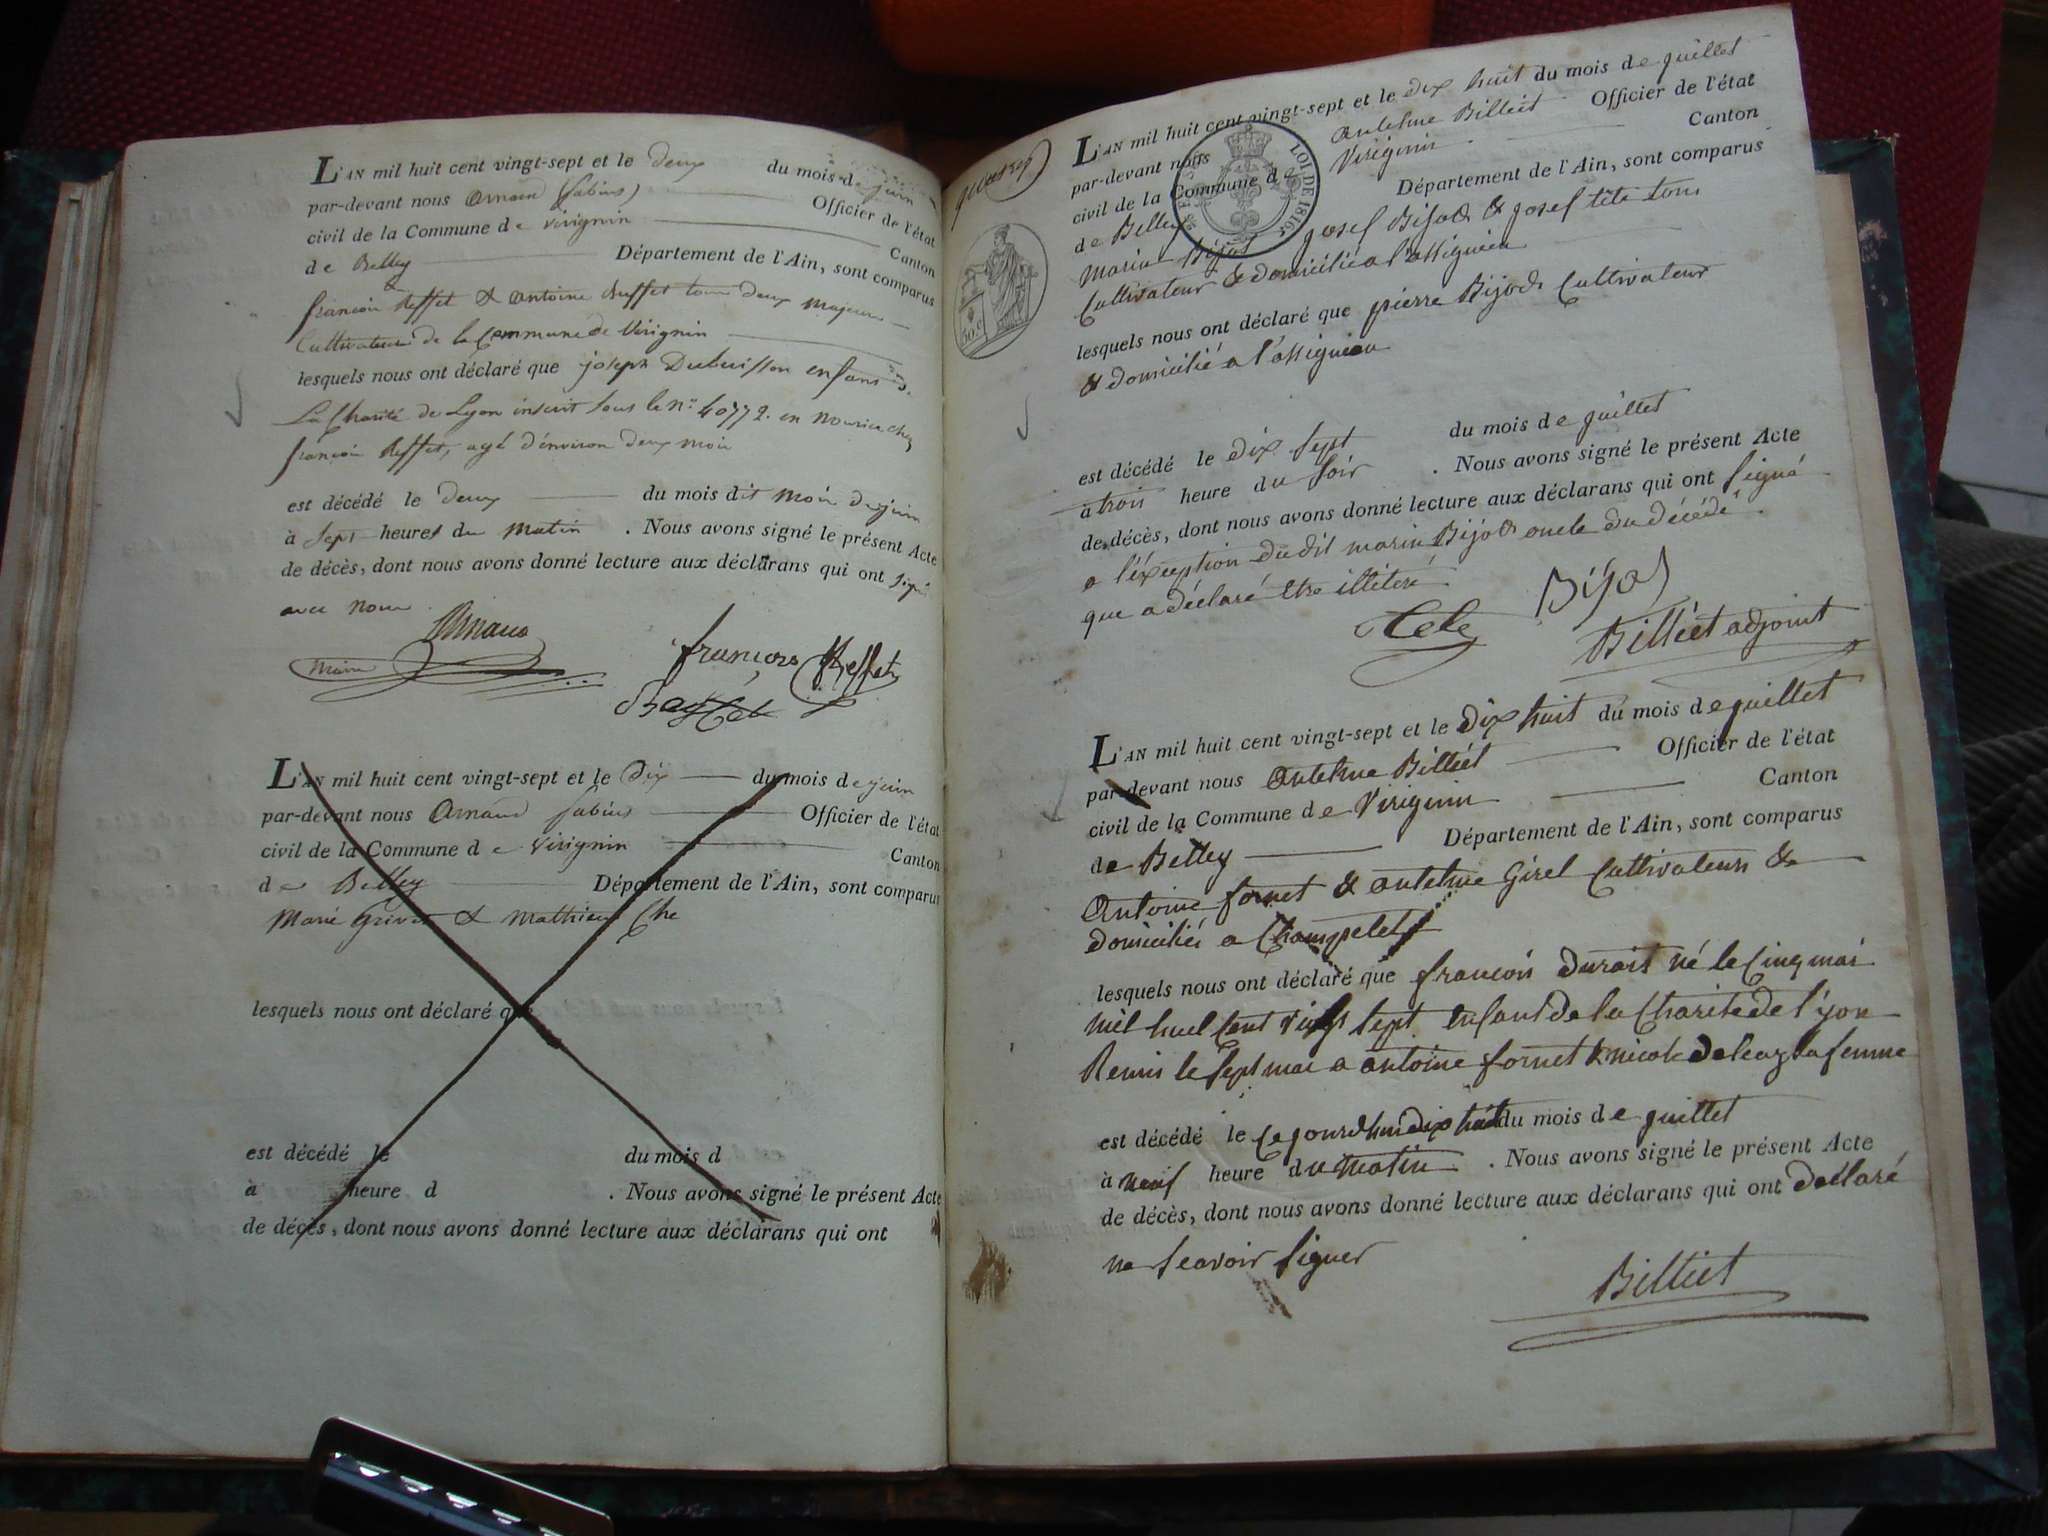 L'AN mil huit cent vingt-sept et le deux du mois de juin
par-devant nous Arnaud (fabius) Officier de l'état
civil de la Commune de Virignin Canton
de Belley Département de l'Ain, sont comparus
françois Reffet & antoine Buffet tous deux majeurs
Cultivateurs de la Commune de Virignin
lesquels nous ont déclaré que joseph Dubuisson enfant de
La Charité de Lyon inscrit sous le N° 40772. en nourice chez
françois Reffet, agé d'environ deux mois
est décédé le deux du mois dit mois de juin
à sept heures du matin . Nous avons signé le présent Acte
de décès, dont nous avons donné lecture aux déclarans qui ont signé
avec nous.
Arnaud
Maire
françois Reffet
L'AN mil huit cent vingt-sept et le Dix du mois de juin
par-devant nous Arnaud fabius Officier de l'état
civil de la Commune de Virignin Canton
de Belley Département de l'Ain, sont comparus
Marie Grivet & Mathieu Che
lesquels nous ont déclaré que
est décédé le du mois d
à heure d . Nous avons signé le présent Acte
de décès, dont nous avons donné lecture aux déclarans qui ont
LOI DE 1816
L'AN mil huit cent vingt-sept et le dix huit du mois de juillet
par-devant nous antelme Billiet Officier de l'état
civil de la Commune de Virignin Canton
de Belley Département de l'Ain, sont comparus
Marin Bijot josef Bijod & josef tête tous
Cultivateur & domicilié a l'assignieu
lesquels nous ont déclaré que pierre Bijod Cultivateur
& domicilié a l'assignieu
est décédé le dix sept du mois de juillet
a trois heure du soir . Nous avons signé le présent Acte
de décès, dont nous avons donné lecture aux déclarans qui ont signé
a l'éxception du dit marin Bijod oncle du décédé
que a déclaré être illiteré
Tete Bijod
Billiet adjoint
L'AN mil huit cent vingt-sept et le dix huit du mois de juillet
par-devant nous antelme Billiet Officier de l'état
civil de la Commune de Virignin Canton
de Belley Département de l'Ain, sont comparus
Antoine fornet & antelme Girel Cultivateurs &
domiciliés a Champetel
lesquels nous ont déclaré que françois durart né le Cinq mai
mil huit Cent vingt sept enfant de la Charité de l'yon
Remis le sept mai a antoine fornet & nicole sa femme
est décédé le Cejourdhui dix huit du mois de juillet
à neuf heure du matin . Nous avons signé le présent Acte
de décès, dont nous avons donné lecture aux déclarans qui ont déclaré
ne scavoir signer
Billiet